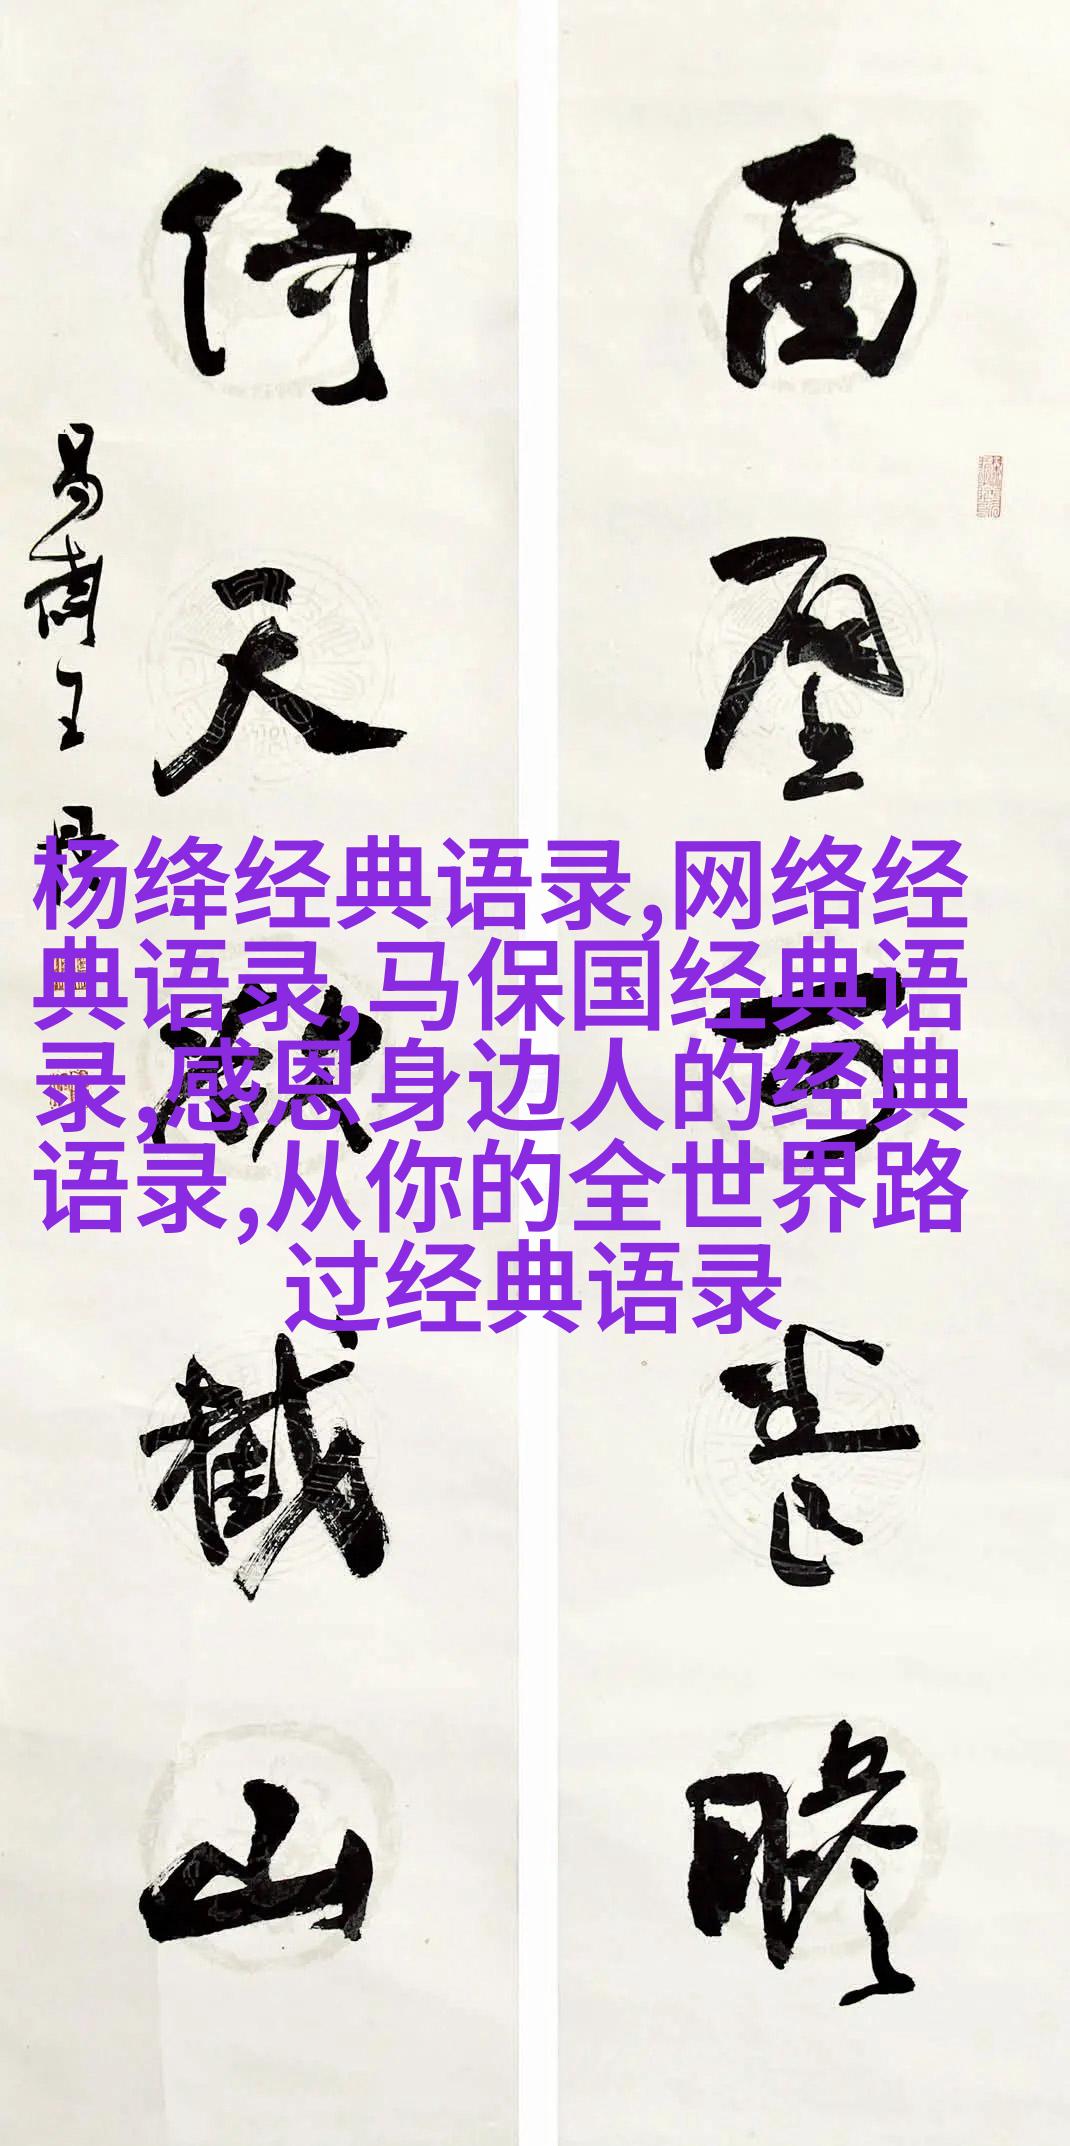 杨绛经典语录,网络经
典语录,马保国经典语
录,感恩身边人的经典
语录,从你的全世界路
过经典语录
壁瞻
倚天欲截山